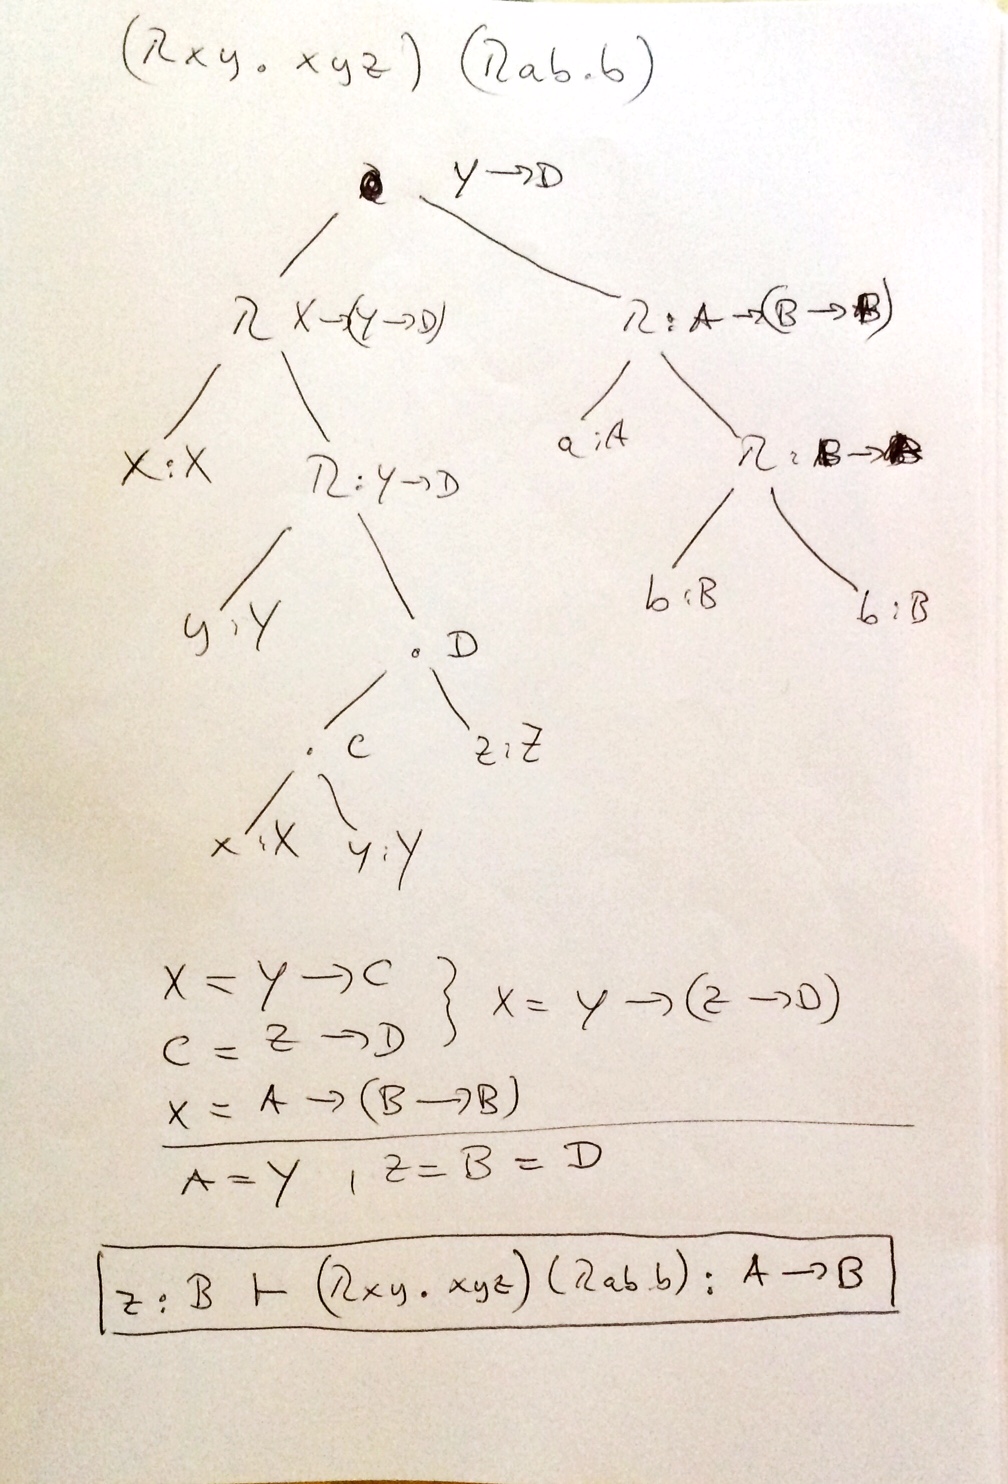 (λxy. xyz) (λab.b)
Y→D
λ X→(Y→D)
λ: A→(B→B)
x:X
λ:Y→D
a:A
λ: B→B
y:Y
. D
b:B
b:B
. C
z:Z
x:X
y:Y
X = Y→C } X = Y→(Z→D)
C = Z→D
X = A→(B→B)
A = Y , Z = B = D
z: B ⊢ (λxy. xyz)(λab.b): A→B